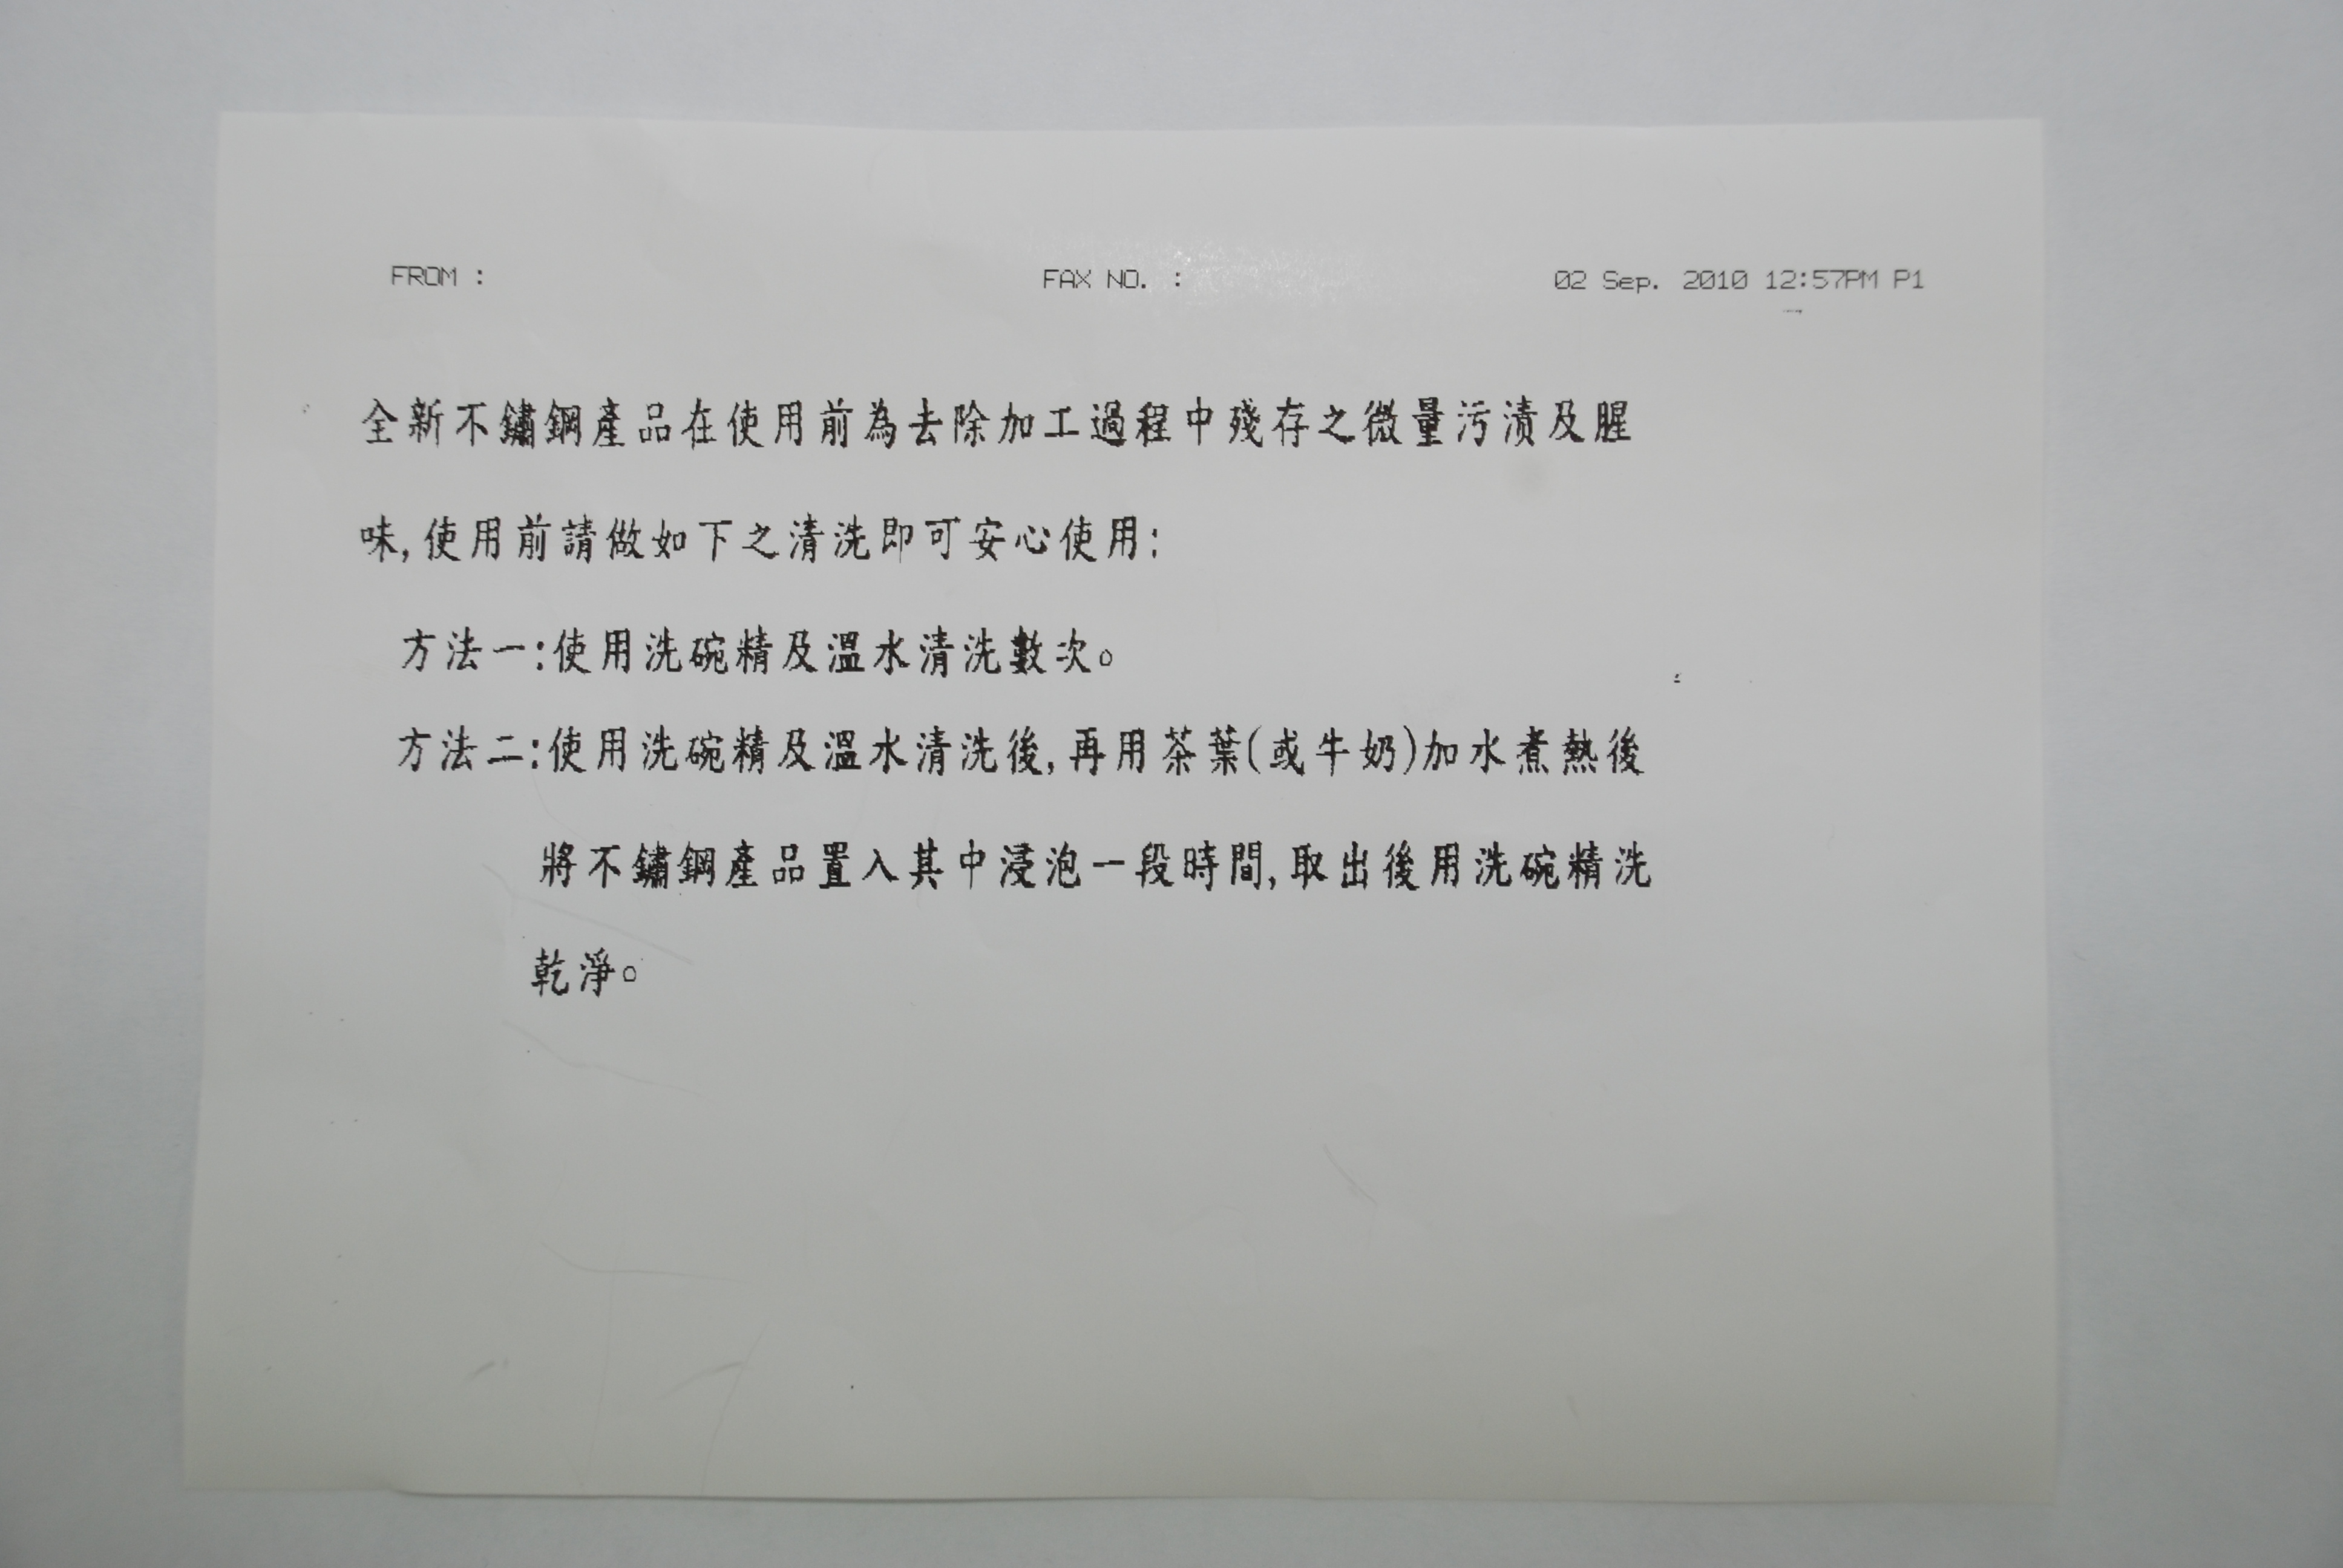 FROM : FAX NO. : 02 Sep. 2010 12:57PM P1
全新不鏽鋼產品在使用前為去除加工過程中殘存之微量污漬及腥
味,使用前請做如下之清洗即可安心使用:
方法一:使用洗碗精及溫水清洗數次。
方法二:使用洗碗精及溫水清洗後,再用茶葉(或牛奶)加水煮熱後
將不鏽鋼產品置入其中浸泡一段時間,取出後用洗碗精洗
乾淨。